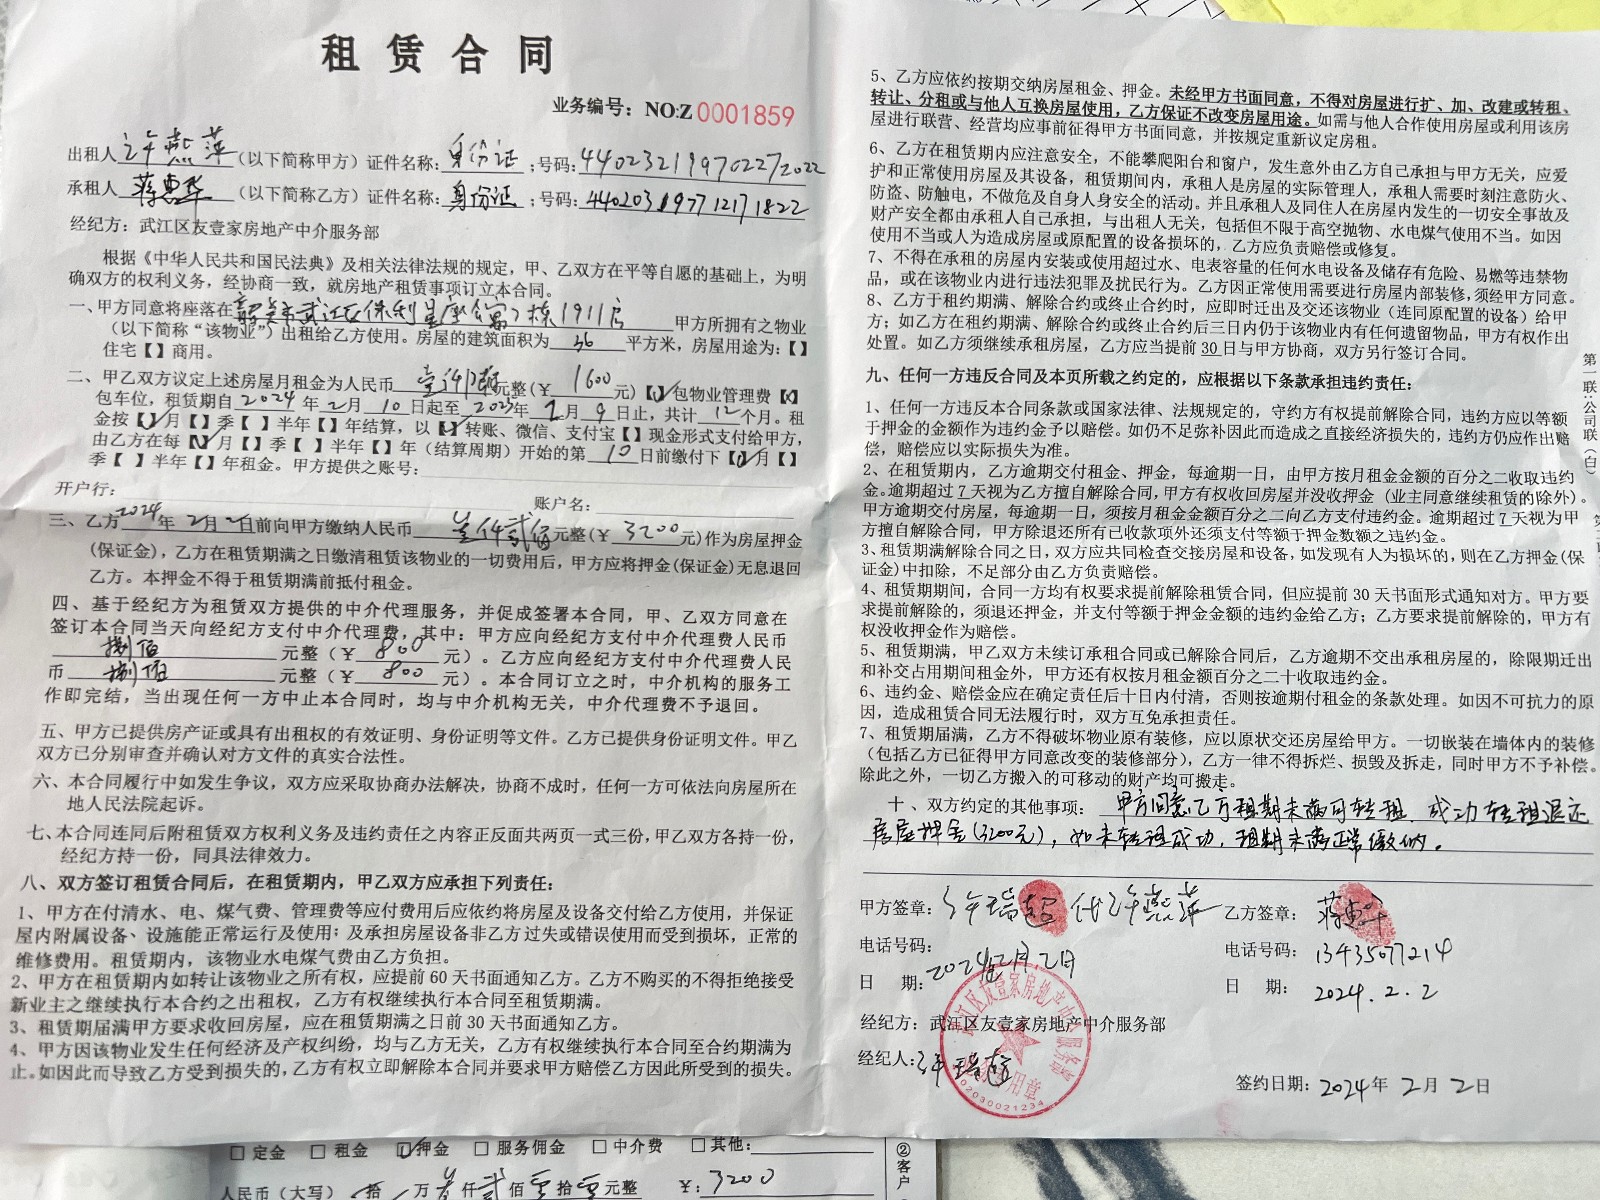 租赁合同
业务编号：NO:Z 0001859
出租人 许燕萍 （以下简称甲方）证件名称：身份证；号码：440232199702272022
承租人 蒋惠华 （以下简称乙方）证件名称：身份证；号码：440203197712171822
经纪方：武江区友壹家房地产中介服务部
根据《中华人民共和国民法典》及相关法律法规的规定，甲、乙双方在平等自愿的基础上，为明
确双方的权利义务，经协商一致，就房地产租赁事项订立本合同。
一、甲方同意将座落在韶关市武江区保利星座公寓2栋1911房 甲方所拥有之物业
（以下简称“该物业”）出租给乙方使用。房屋的建筑面积为 36 平方米，房屋用途为：【】
住宅【】商用。
二、甲乙双方议定上述房屋月租金为人民币 壹仟陆佰元整（￥ 1600 元）【√】包物业管理费【×】
包车位，租赁期自2024年2月10日起至2025年2月9日止，共计12个月。租
金按【√】月【】季【】半年【】年结算，以【√】转账、微信、支付宝【】现金形式支付给甲方，
由乙方在每【√】月【】季【】半年【】年（结算周期）开始的第 10 日前缴付下【√】月【】
季【】半年【】年租金。甲方提供之账号：
开户行： 账户名：
三、乙方2024年2月2日前向甲方缴纳人民币 叁仟贰佰元整（￥ 3200 元）作为房屋押金
(保证金)，乙方在租赁期满之日缴清租赁该物业的一切费用后，甲方应将押金(保证金)无息退回
乙方。本押金不得于租赁期满前抵付租金。
四、基于经纪方为租赁双方提供的中介代理服务，并促成签署本合同，甲、乙双方同意在
签订本合同当天向经纪方支付中介代理费，其中：甲方应向经纪方支付中介代理费人民币
捌佰 元整（￥ 800 元）。乙方应向经纪方支付中介代理费人民
币 捌佰 元整（￥ 800 元）。本合同订立之时，中介机构的服务工
作即完结，当出现任何一方中止本合同时，均与中介机构无关，中介代理费不予退回。
五、甲方已提供房产证或具有出租权的有效证明、身份证明等文件。乙方已提供身份证明文件。甲乙
双方已分别审查并确认对方文件的真实合法性。
六、本合同履行中如发生争议，双方应采取协商办法解决，协商不成时，任何一方可依法向房屋所在
地人民法院起诉。
七、本合同连同后附租赁双方权利义务及违约责任之内容正反面共两页一式三份，甲乙双方各持一份，
经纪方持一份，同具法律效力。
八、双方签订租赁合同后，在租赁期内，甲乙双方应承担下列责任：
1、甲方在付清水、电、煤气费、管理费等应付费用后应依约将房屋及设备交付给乙方使用，并保证
屋内附属设备、设施能正常运行及使用；及承担房屋设备非乙方过失或错误使用而受到损坏，正常的
维修费用。租赁期内，该物业水电煤气费由乙方负担。
2、甲方在租赁期内如转让该物业之所有权，应提前60天书面通知乙方。乙方不购买的不得拒绝接受
新业主之继续执行本合约之出租权，乙方有权继续执行本合同至租赁期满。
3、租赁期届满甲方要求收回房屋，应在租赁期满之日前30天书面通知乙方。
4、甲方因该物业发生任何经济及产权纠纷，均与乙方无关，乙方有权继续执行本合同至合约期满为
止。如因此而导致乙方受到损失的，乙方有权立即解除本合同并要求甲方赔偿乙方因此所受到的损失。
5、乙方应依约按期交纳房屋租金、押金。未经甲方书面同意，不得对房屋进行扩、加、改建或转租、
转让、分租或与他人互换房屋使用，乙方保证不改变房屋用途。如需与他人合作使用房屋或利用该房
屋进行联营、经营均应事前征得甲方书面同意，并按规定重新议定房租。
6、乙方在租赁期内应注意安全，不能攀爬阳台和窗户，发生意外由乙方自己承担与甲方无关，应爱
护和正常使用房屋及其设备，租赁期间内，承租人是房屋的实际管理人，承租人需要时刻注意防火、
防盗、防触电，不做危及自身人身安全的活动。并且承租人及同住人在房屋内发生的一切安全事故及
财产安全都由承租人自己承担，与出租人无关，包括但不限于高空抛物、水电煤气使用不当。如因
使用不当或人为造成房屋或原配置的设备损坏的，乙方应负责赔偿或修复。
7、不得在承租的房屋内安装或使用超过水、电表容量的任何水电设备及储存有危险、易燃等违禁物
品，或在该物业内进行违法犯罪及扰民行为。乙方因正常使用需要进行房屋内部装修，须经甲方同意。
8、乙方于租约期满、解除合约或终止合约时，应即时迁出及交还该物业（连同原配置的设备）给甲
方；如乙方在租约期满、解除合约或终止合约后三日内仍于该物业内有任何遗留物品，甲方有权作出
处置。如乙方须继续承租房屋，乙方应当提前30日与甲方协商，双方另行签订合同。
九、任何一方违反合同及本页所载之约定的，应根据以下条款承担违约责任：
1、任何一方违反本合同条款或国家法律、法规规定的，守约方有权提前解除合同，违约方应以等额
于押金的金额作为违约金予以赔偿。如仍不足弥补因此而造成之直接经济损失的，违约方仍应作出赔
偿，赔偿应以实际损失为准。
2、在租赁期内，乙方逾期交付租金、押金，每逾期一日，由甲方按月租金金额的百分之二收取违约
金。逾期超过7天视为乙方擅自解除合同，甲方有权收回房屋并没收押金（业主同意继续租赁的除外）。
甲方逾期交付房屋，每逾期一日，须按月租金金额百分之二向乙方支付违约金。逾期超过7天视为甲
方擅自解除合同，甲方除退还所有已收款项外还须支付等额于押金数额之违约金。
3、租赁期满解除合同之日，双方应共同检查交接房屋和设备，如发现有人为损坏的，则在乙方押金(保
证金)中扣除，不足部分由乙方负责赔偿。
4、租赁期期间，合同一方均有权要求提前解除租赁合同，但应提前30天书面形式通知对方。甲方要
求提前解除的，须退还押金，并支付等额于押金金额的违约金给乙方；乙方要求提前解除的，甲方有
权没收押金作为赔偿。
5、租赁期满，甲乙双方未续订承租合同或已解除合同后，乙方逾期不交出承租房屋的，除限期迁出
和补交占用期间租金外，甲方还有权按月租金额百分之二十收取违约金。
6、违约金、赔偿金应在确定责任后十日内付清，否则按逾期付租金的条款处理。如因不可抗力的原
因，造成租赁合同无法履行时，双方互免承担责任。
7、租赁期届满，乙方不得破坏物业原有装修，应以原状交还房屋给甲方。一切嵌装在墙体内的装修
（包括乙方已征得甲方同意改变的装修部分），乙方一律不得拆烂、损毁及拆走，同时甲方不予补偿。
除此之外，一切乙方搬入的可移动的财产均可搬走。
十、双方约定的其他事项：甲方同意乙方租期未满可转租，成功转租退还
房屋押金(3200元)，如未转租成功，租期未满正常缴纳。
甲方签章：许瑞超 代许燕萍 乙方签章：蒋惠华
电话号码： 电话号码：13435077214
日 期：2024年2月2日 日 期：2024.2.2
经纪方：武江区友壹家房地产中介服务部
经纪人：许瑞超
签约日期：2024年2月2日
武江区友壹家房地产中介服务部
02030021234
第一联：公司联（白）
□定金 □租金 ☑押金 □服务佣金 □中介费 □其他：
人民币（大写） 拾 万叁仟贰佰零拾零元整 ￥：3200
②客户